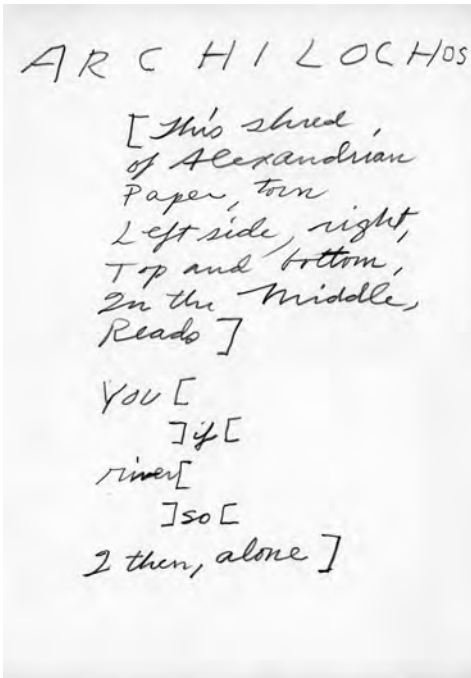 ARCHILOCHOS
[This shred
of Alexandrian
Paper, torn
Left side, right,
Top and bottom,
In the Middle,
Reads]
You [
]if[
river[
]so[
I then, alone]